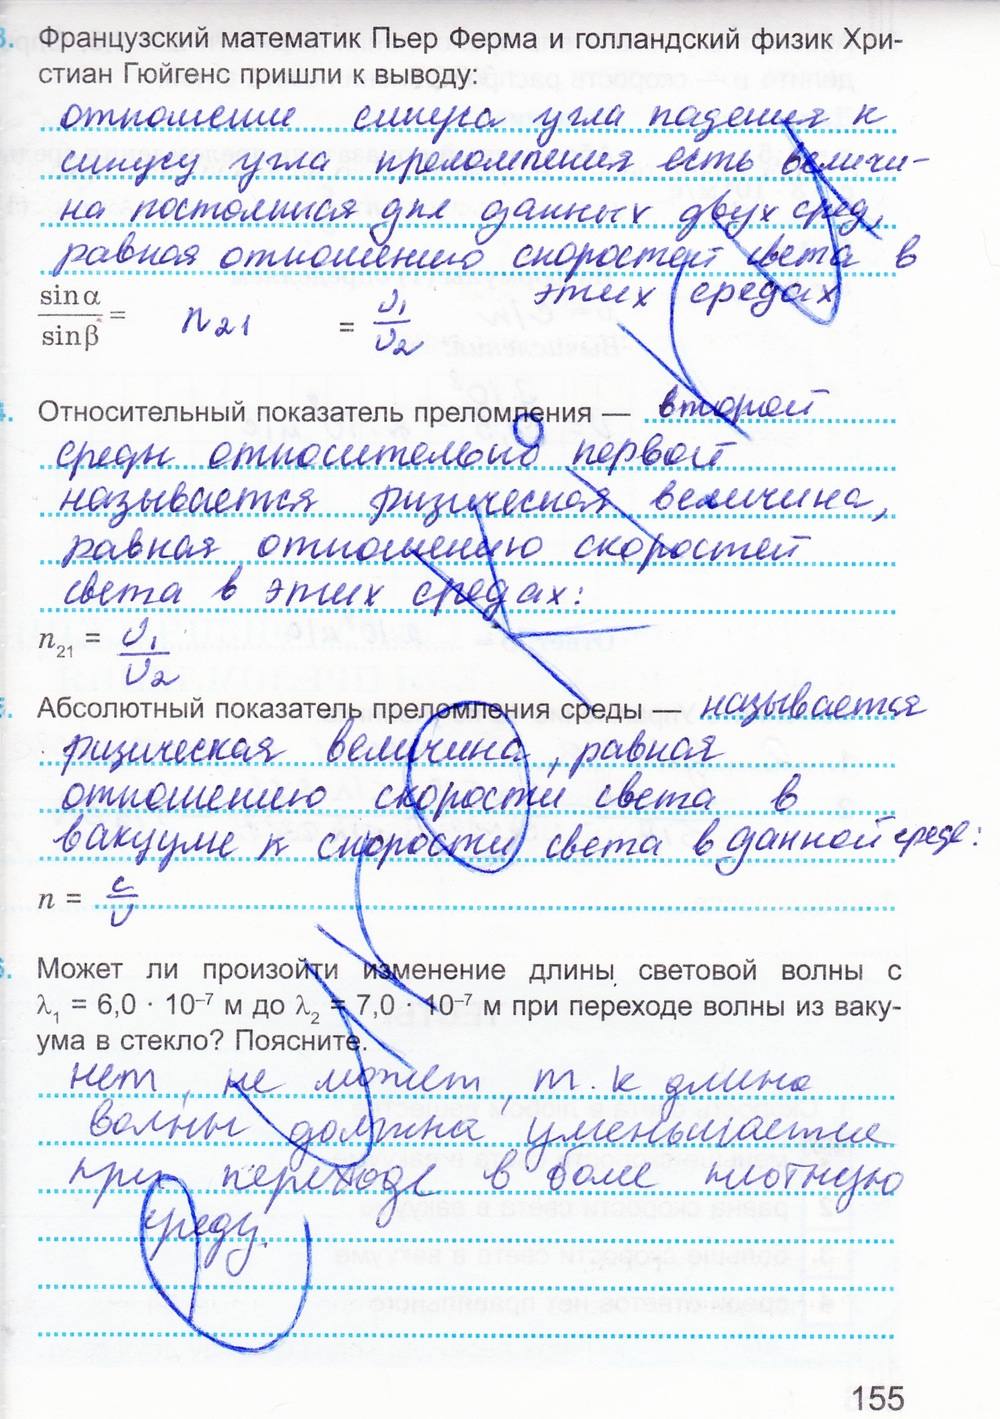 3. Французский математик Пьер Ферма и голландский физик Хри-
стиан Гюйгенс пришли к выводу:
отношение синуса угла падения к
синусу угла преломления есть величи-
на постоянная для данных двух сред,
равная отношению скоростей света в
этих средах
sinα/sinβ = n21 = υ1/υ2
4. Относительный показатель преломления — второй
среды относительно первой
называется физическая величина,
равная отношению скоростей
света в этих средах:
n21 = υ1/υ2
5. Абсолютный показатель преломления среды — называется
физическая величина, равная
отношению скорости света в
вакууме к скорости света в данной среде:
n = c/υ
6. Может ли произойти изменение длины световой волны с
λ1 = 6,0 · 10⁻⁷ м до λ2 = 7,0 · 10⁻⁷ м при переходе волны из ваку-
ума в стекло? Поясните.
нет, не может, т.к длина
волны должна уменьшается
при переходе в боле плотную
среду.
155